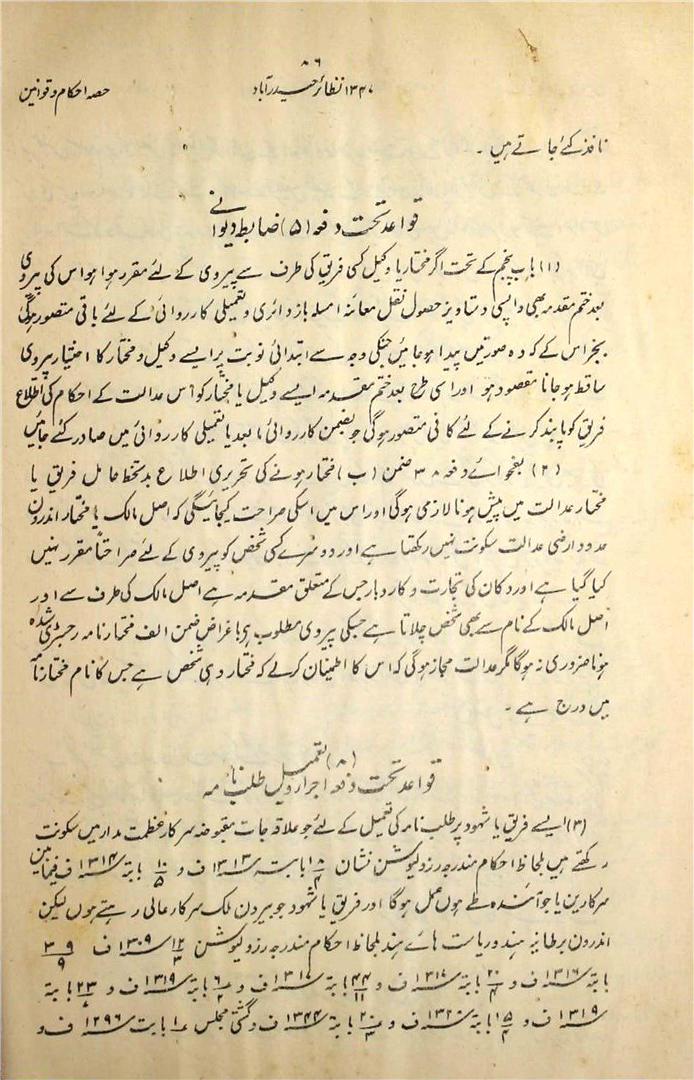 ۸۶
۱۳۴۷ نظائر حیدرآباد
حصہ احکام و قوانین
نافذ کئے جاتے ہیں ۔
قواعد تحت دفعہ (۵) ضابطہ دیوانی
(۱) باب پنجم کے تحت اگر مختار یا وکیل کسی فریق کی طرف سے پیروی کے لئے مقرر ہوا ہو اس کی پیروی
بعد ختم مقدمہ بھی واپسی دستاویز حصول نقل معائنہ امسلہ باز دائری و تعمیلی کارروائی کے لئے باقی متصور ہوگی
بجز اس کے کہ وہ صورتیں پیدا ہوجائیں جنکی وجہ سے ابتدائی نوبت پر ایسے وکیل و مختار کا اختیار پیروی
ساقط ہوجانا مقصود ہو اور اسی طرح بعد ختم مقدمہ ایسے وکیل یا مختار کو اس عدالت کے احکام کی اطلاع
فریق کو پابند کرنے کے لئے کافی متصور ہوگی جو بضمن کارروائی مابعد یا تعمیلی کارروائی میں صادر کئے جائیں
(۲) بفحوائے دفعہ ۳۸ ضمن (ب) مختار ہونے کی تحریری اطلاع بدستخط عامل فریق یا
مختار عدالت میں پیش ہونا لازمی ہوگا اور اس میں اسکی صراحت کیجائیگی کہ اصل مالک یا مختار اندرون
حدود ارضی عدالت سکونت نہیں رکھتا ہے اور دوسرے کسی شخص کو پیروی کے لئے صراحتاً مقرر نہیں
کیا گیا ہے اور دکان کی تجارت و کاروبار جس کے متعلق مقدمہ ہے اصل مالک کی طرف سے اور
اصل مالک کے نام سے بھی شخص چلاتا ہے جسکی پیروی مطلوب ہی باغراض ضمن الف مختار نامہ رجسٹری شدہ
ہونا ضروری نہ ہوگا مگر عدالت مجاز ہوگی کہ اس کا اطمینان کرلے کہ مختار وہی شخص ہے جس کا نام مختار نامہ
میں درج ہے ۔
قواعد تحت دفعہ (۸) تعمیل طلب نامہ
(۳) ایسے فریق یا شہود پر طلب نامہ کی تعمیل کے لئے جو علاقہ جات مقبوضہ سرکار عظمت مدار میں سکونت
رکھتے ہیں بلحاظ احکام مندرجہ رزولیوشن نشان بابت سنہ ۱۳۱۳ ف و ۱۰/۵ بابتہ سنہ ۱۳۱۴ ف فیمابین
سرکارین یا جو آئندہ طے ہوں عمل ہوگا اور فریق یا شہود جو بیرون ملک سرکار عالی رہتے ہوں لیکن
اندرون برطانیہ ہند و ریاست ہائے ہند بلحاظ احکام مندرجہ رزولیوشن ۱۲/۳ سنہ ۱۳۰۹ ف ۳۹/۹
بابتہ سنہ ۱۳۱۶ ف و ۲۰/۴ بابتہ سنہ ۱۳۱۷ ف و ۴۴/۱۱ بابتہ سنہ ۱۳۱۷ ف و بابتہ سنہ ۱۳۱۹ ف و بابتہ
سنہ ۱۳۱۹ ف و ۱۵/۴ بابتہ سنہ ۱۳۲۰ ف و بابتہ سنہ ۱۳۴۴ ف و گشتی مجلس بابت سنہ ۱۲۹۶ ف و